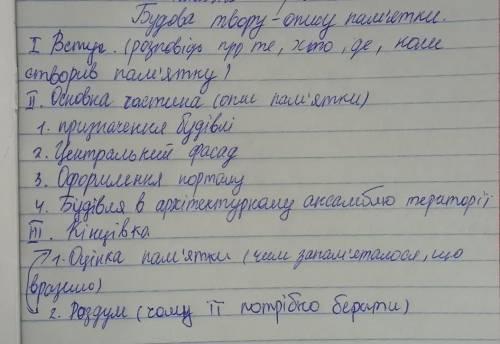 Будова твору-опису пам'ятки.
I Вступ. (розповідь про те, хто, де, коли
створив пам'ятку)
II. Основна частина (опис пам'ятки)
1. призначення будівлі
2. Центральний фасад
3. Оформлення порталу
4. Будівля в архітектурному ансамблю території
III. Кінцівка
1. Оцінка пам'ятки (чим запам'яталося, що
вразило)
2. Роздум (чому її потрібно берегти)